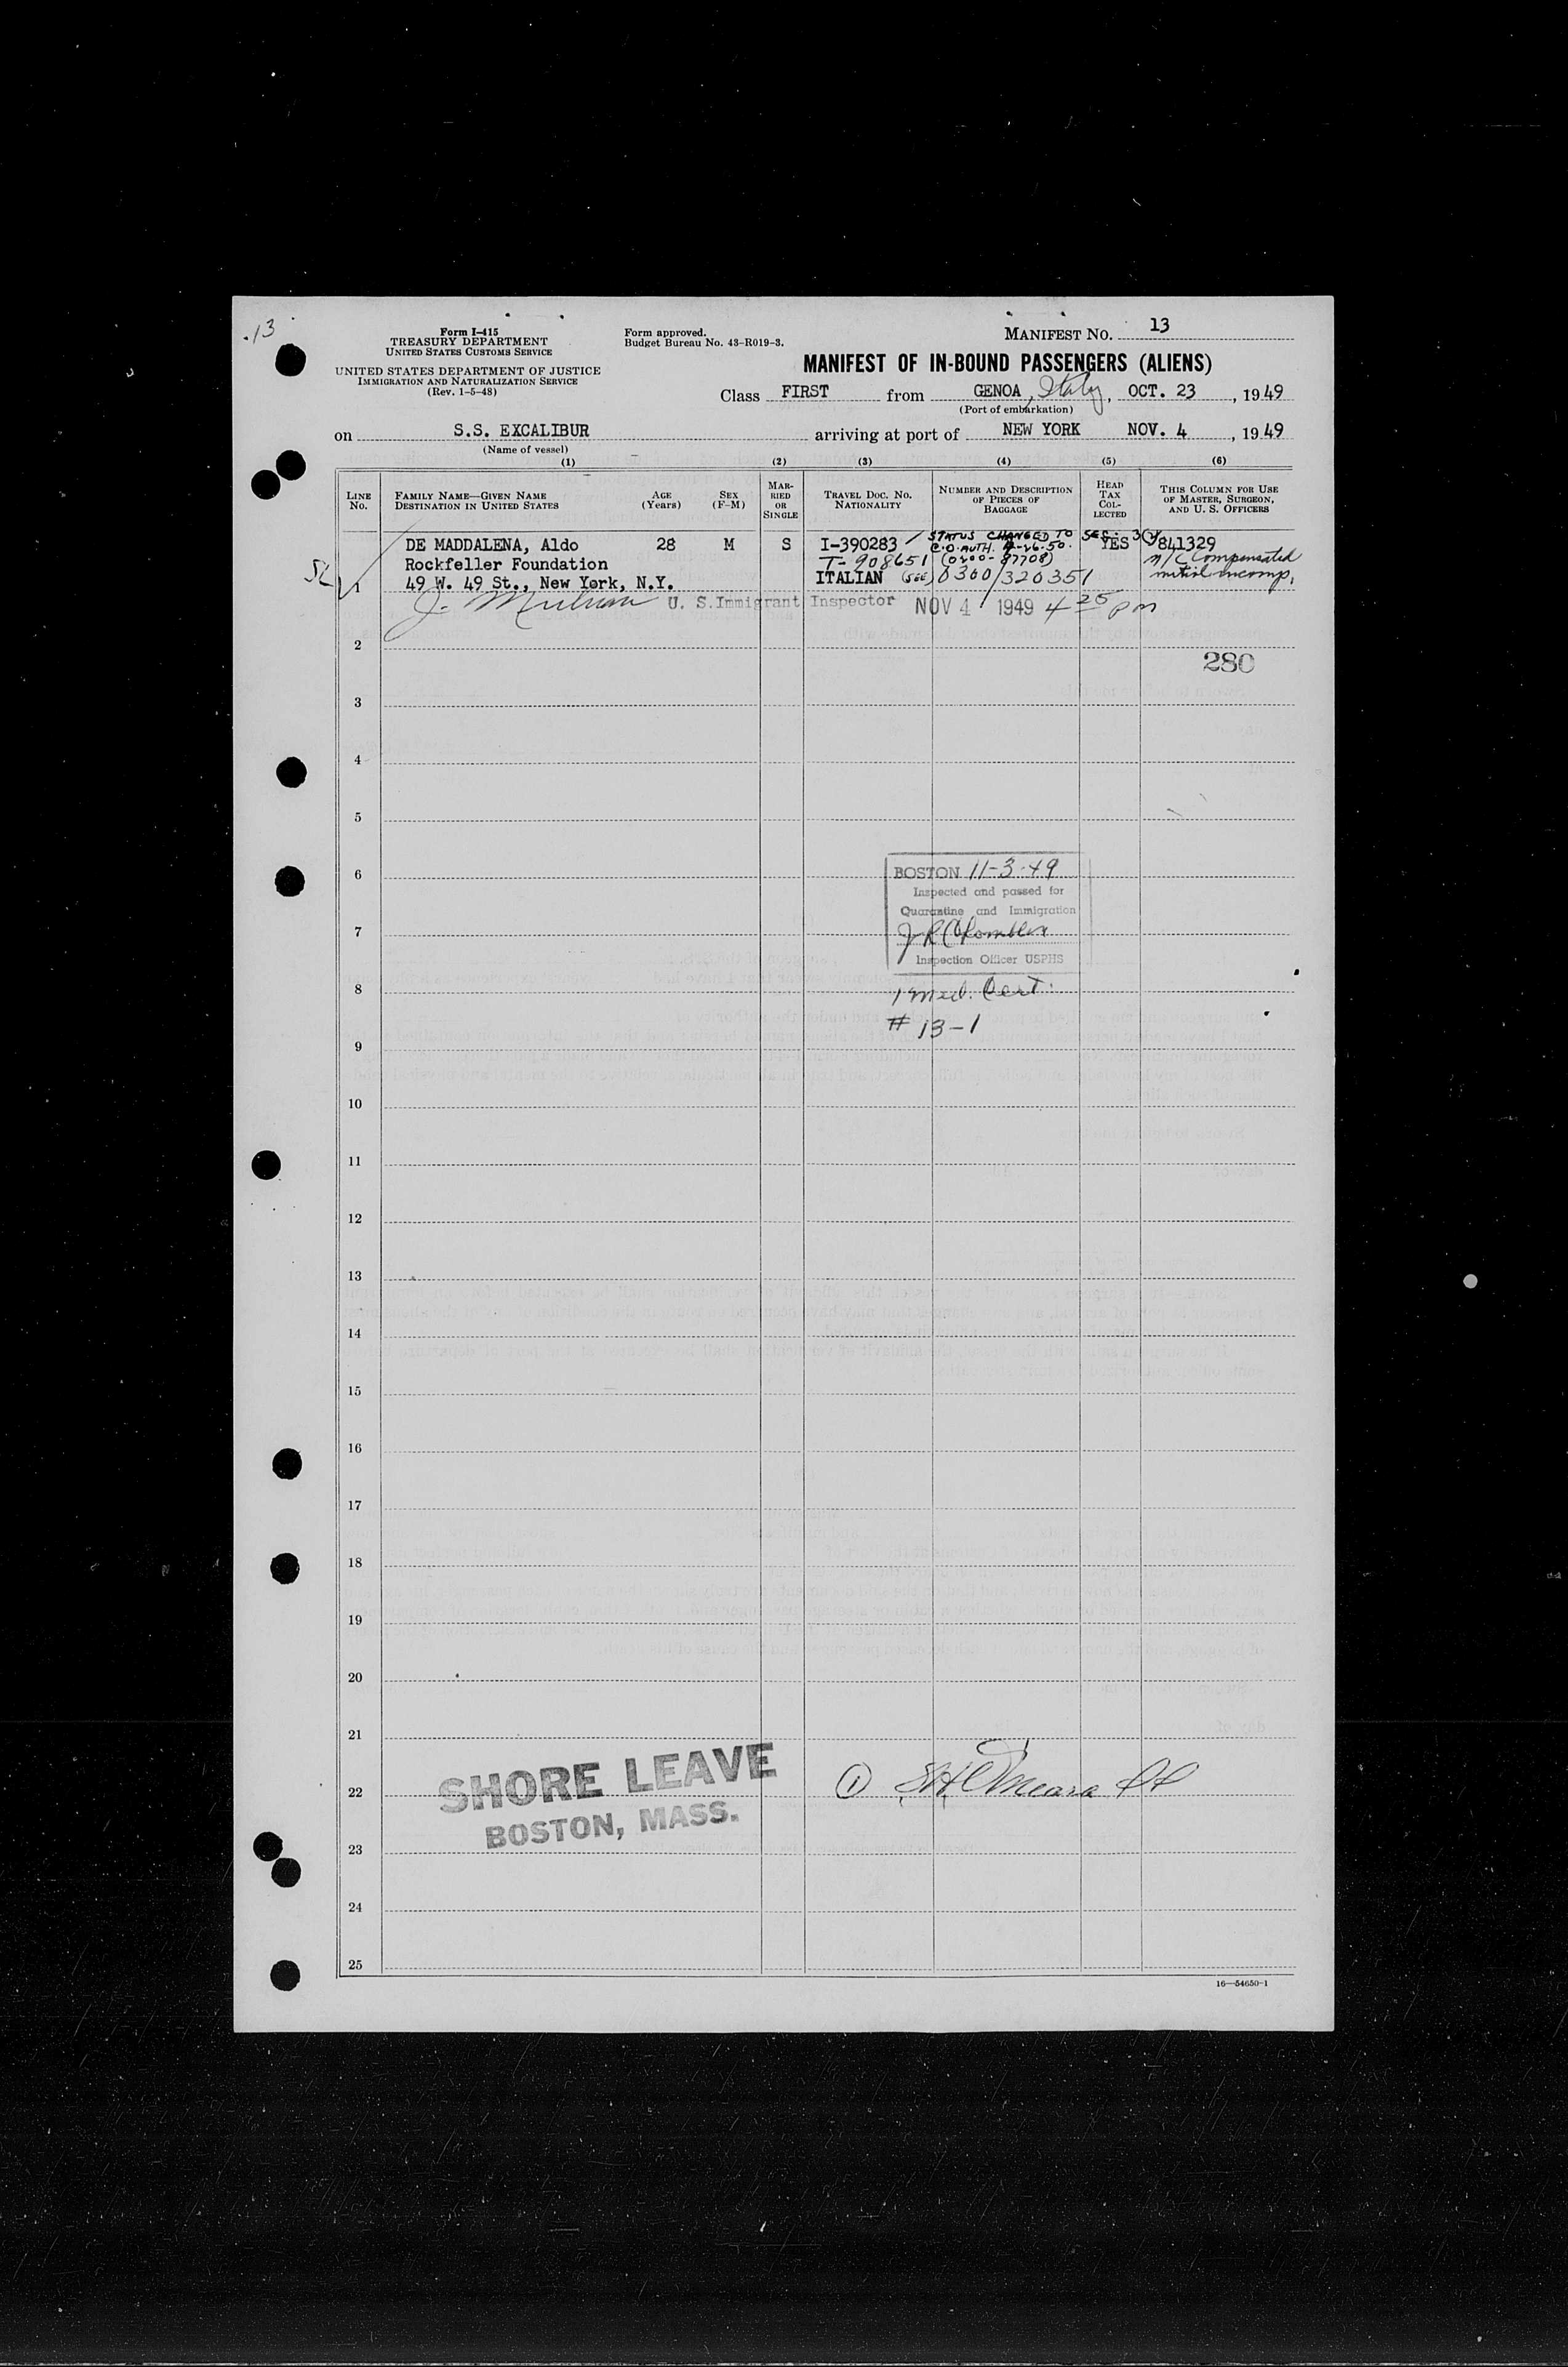 13
Form I-415
TREASURY DEPARTMENT
UNITED STATES CUSTOMS SERVICE
UNITED STATES DEPARTMENT OF JUSTICE
IMMIGRATION AND NATURALIZATION SERVICE
(Rev. 1-5-48)
Form approved.
Budget Bureau No. 43-R019-3.
MANIFEST NO. 13
MANIFEST OF IN-BOUND PASSENGERS (ALIENS)
Class FIRST from GENOA, Italy, OCT. 23, 1949
(Port of embarkation)
on S.S. EXCALIBUR arriving at port of NEW YORK NOV. 4, 1949
(Name of vessel)
(1) (2) (3) (4) (5) (6)
LINE No.
FAMILY NAME—GIVEN NAME
DESTINATION IN UNITED STATES
AGE (Years)
SEX (F-M)
MARRIED OR SINGLE
TRAVEL DOC. NO. NATIONALITY
NUMBER AND DESCRIPTION OF PIECES OF BAGGAGE
HEAD TAX COLLECTED
THIS COLUMN FOR USE OF MASTER, SURGEON, AND U. S. OFFICERS
STATUS CHANGED TO SEC. 3(
DE MADDALENA, Aldo 28 M S I-390283 C.O. AUTH. YES 841329
Rockfeller Foundation T-908651 (0300-87708) N/C Compensated
1 49 W. 49 St., New York, N.Y. ITALIAN (SEE) 0300/320351 mitral incomp.
U. S. Immigrant Inspector NOV 4 1949 4 25 pm
2
280
3
4
5
6
BOSTON 11-3-49
Inspected and passed for
Quarantine and Immigration
7
Inspection Officer USPHS
8
1 med. Cert.
# 13-1
9
10
11
12
13
14
15
16
17
18
19
20
21
SHORE LEAVE
22
BOSTON, MASS.
1
23
24
25
16—54650-1